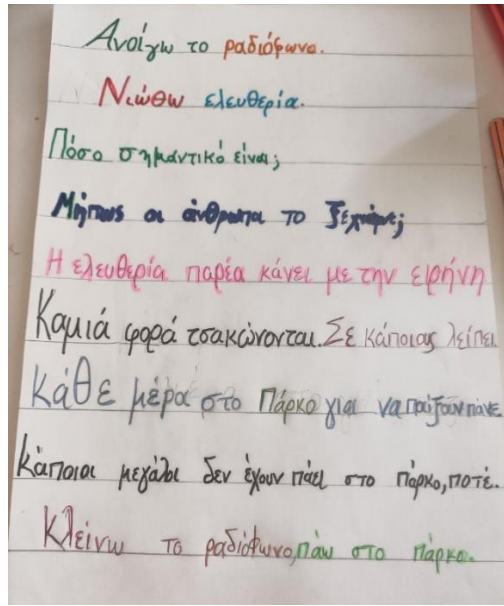 Ανοίγω το ραδιόφωνο.
Νιώθω ελευθερία.
Πόσο σημαντικό είναι;
Μήπως οι άνθρωποι το ξεχνάμε;
Η ελευθερία παρέα κάνει με την ειρήνη
Καμιά φορά τσακώνονται. Σε κάποιους λείπει
Κάθε μέρα στο Πάρκο για να παίξουν πάνε
Κάποιοι μεγάλοι δεν έχουν πάει στο πάρκο, ποτέ.
Κλείνω το ραδιόφωνο, πάω στο πάρκο.